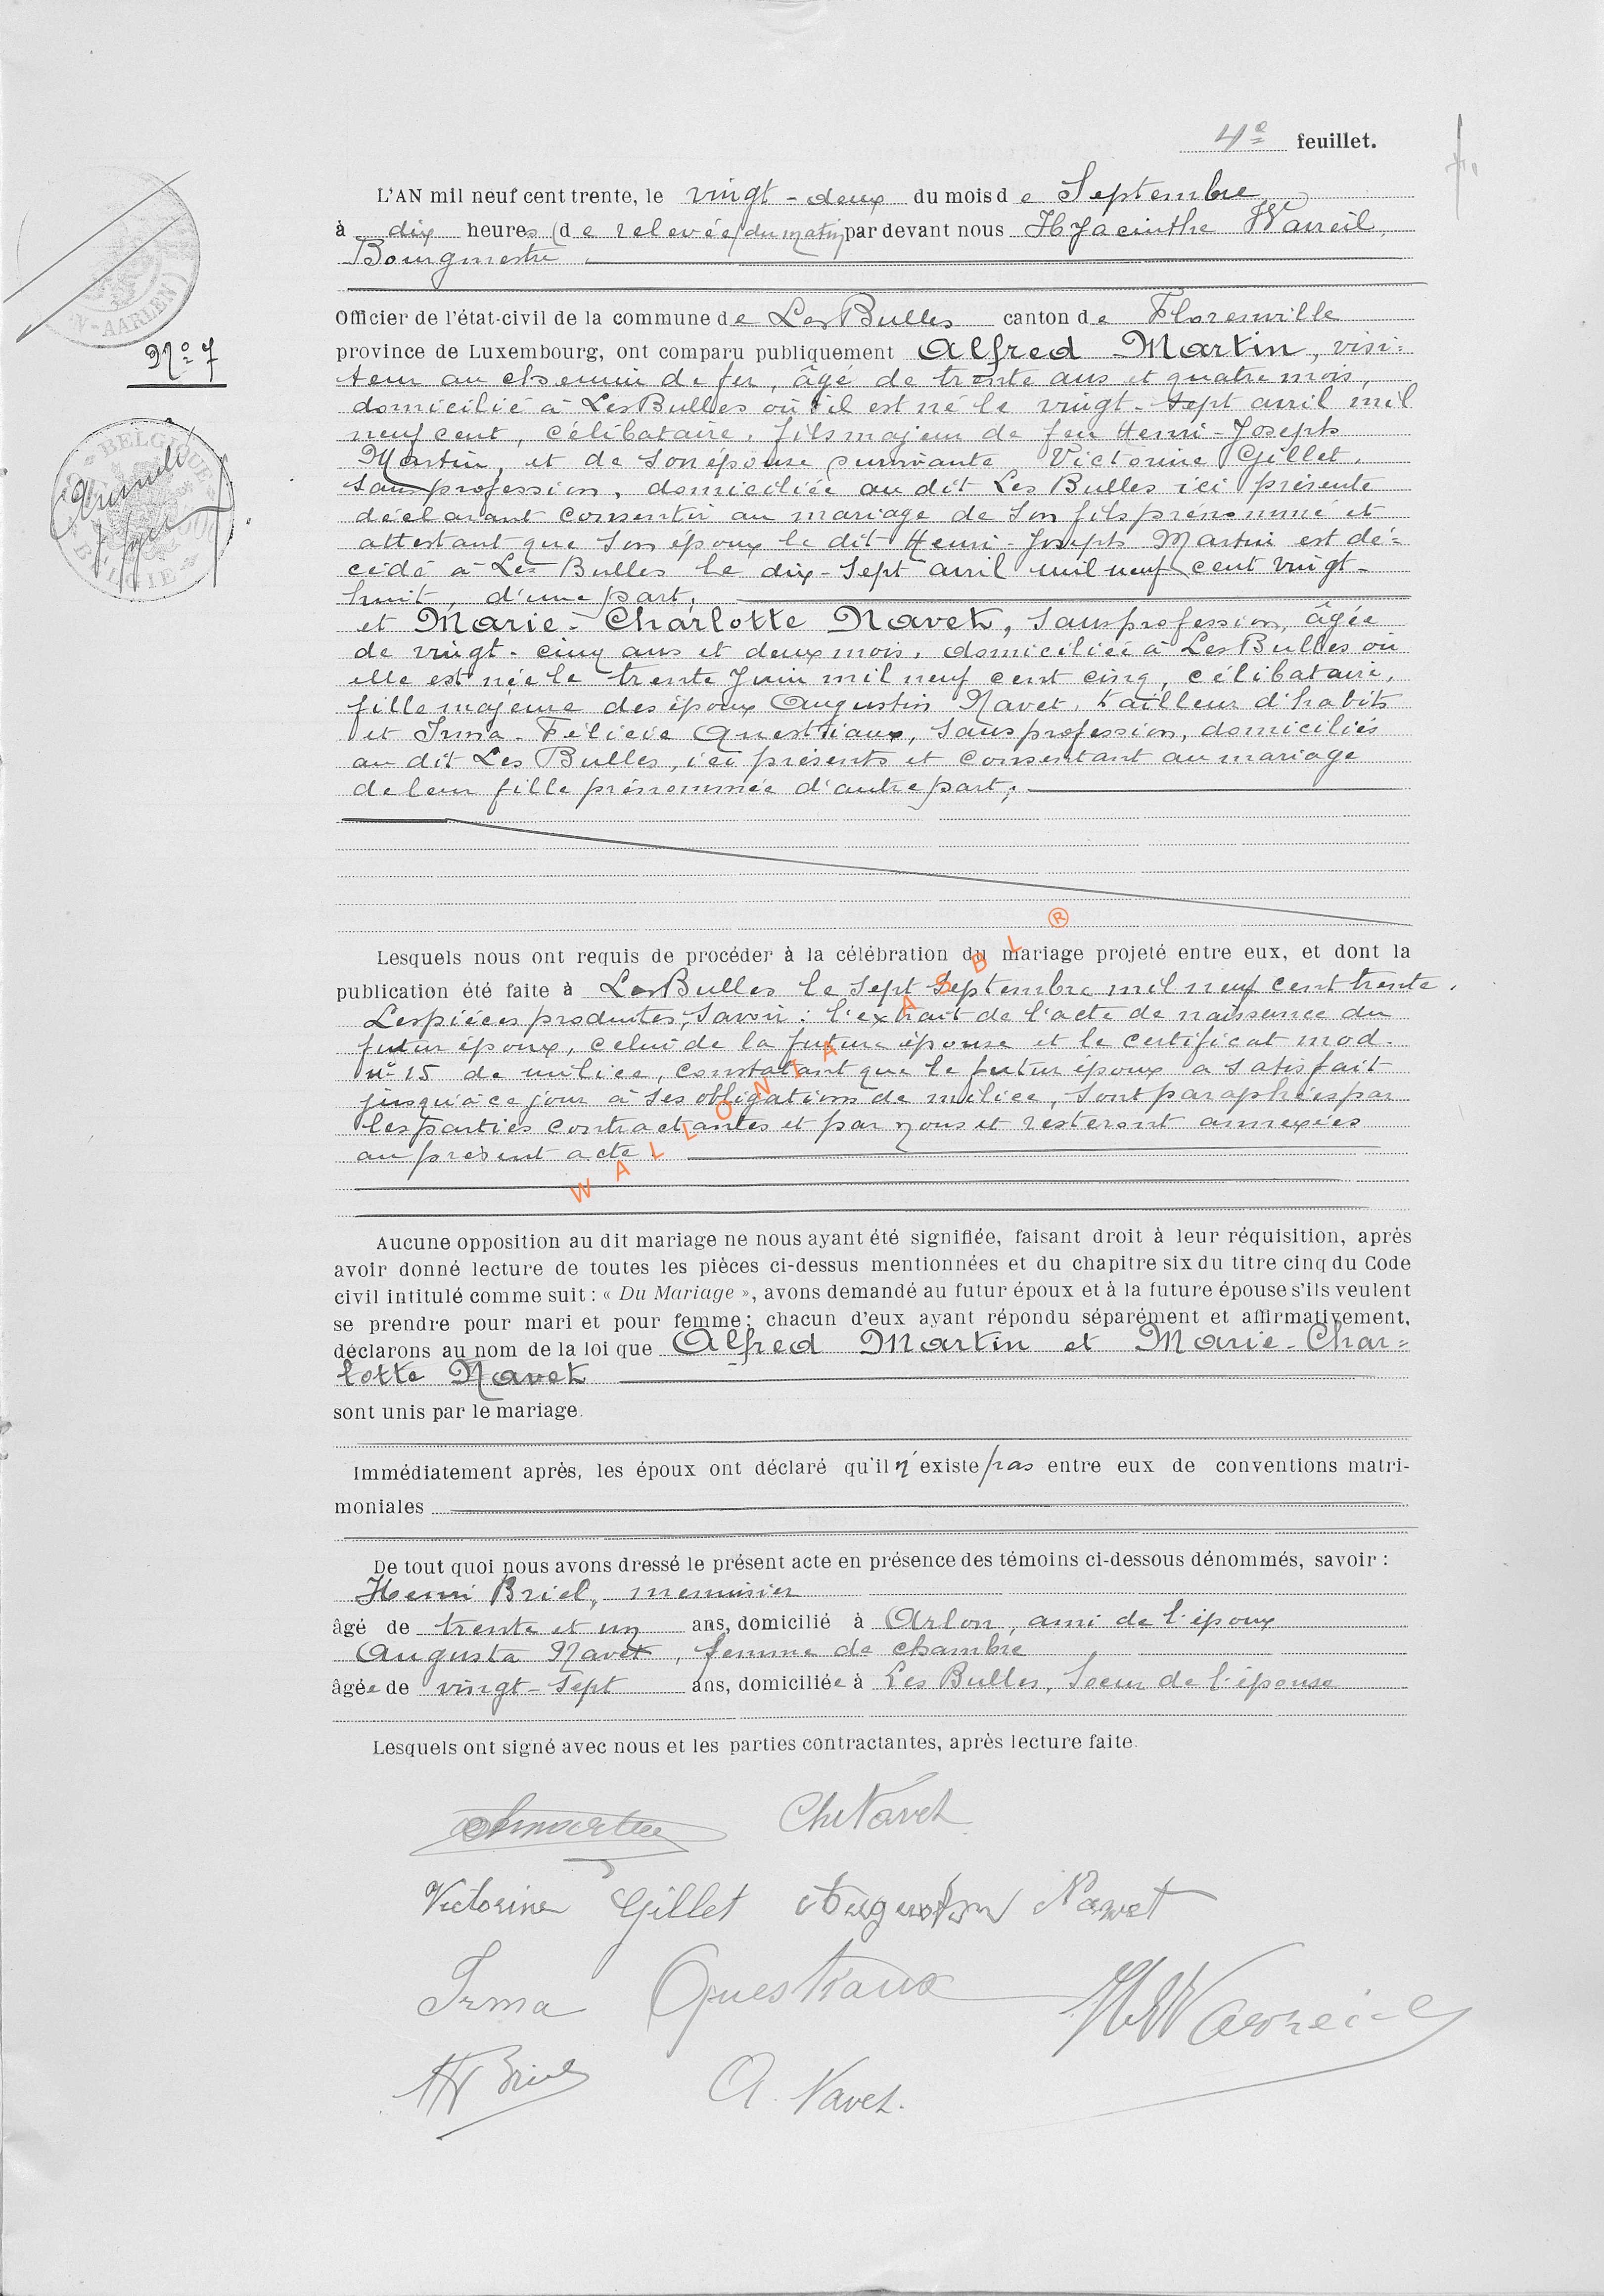 4e feuillet.
L'AN mil neuf cent trente, le vingt-deux du mois de Septembre
à dix heures (de relevée/du matin) par devant nous Hyacinthe Warreil,
Bourgmestre
Officier de l'état-civil de la commune de Les Bulles canton de Florenville
N° 7
province de Luxembourg, ont comparu publiquement Alfred Martin, visi=
teur au chemin de fer, âgé de trente ans et quatre mois,
domicilié à Les Bulles où il est né le vingt-sept avril mil
neuf cent, célibataire, fils majeur de feu Henri-Joseph
Martin, et de son épouse survivante Victorine Gillet,
sans profession, domiciliée au dit Les Bulles ici présente
déclarant consentir au mariage de son fils prénommé et
attestant que son époux le dit Henri-Joseph Martin est dé=
cédé à Les Bulles le dix-sept avril mil neuf cent vingt-
huit, d'une part,
et Marie-Charlotte Navet, sans profession, âgée
de vingt-cinq ans et deux mois, domiciliée à Les Bulles où
elle est née le trente Juin mil neuf cent cinq, célibataire,
fille majeure des époux Augustin Navet, tailleur d'habits
et Irma-Félicie Questiaux, sans profession, domiciliés
au dit Les Bulles, ici présents et consentant au mariage
de leur fille prénommée d'autre part;
Lesquels nous ont requis de procéder à la célébration du mariage projeté entre eux, et dont la
publication été faite à Les Bulles le sept Septembre mil neuf cent trente.
Les pièces produites, savoir: l'extrait de l'acte de naissance du
futur époux, celui de la future épouse et le certificat mod.
n° 15 de milice, constatant que le futur époux a satisfait
jusqu'à ce jour à ses obligations de milice, sont paraphées par
les parties contractantes et par nous et resteront annexées
au présent acte
WALLONIA ASBL ®
Aucune opposition au dit mariage ne nous ayant été signifiée, faisant droit à leur réquisition, après
avoir donné lecture de toutes les pièces ci-dessus mentionnées et du chapitre six du titre cinq du Code
civil intitulé comme suit : « Du Mariage », avons demandé au futur époux et à la future épouse s'ils veulent
se prendre pour mari et pour femme; chacun d'eux ayant répondu séparément et affirmativement,
déclarons au nom de la loi que Alfred Martin et Marie-Char=
lotte Navet
sont unis par le mariage.
Immédiatement après, les époux ont déclaré qu'il n'existe pas entre eux de conventions matri-
moniales
De tout quoi nous avons dressé le présent acte en présence des témoins ci-dessous dénommés, savoir :
Henri Briel, menuisier
âgé de trente et un ans, domicilié à Arlon, ami de l'époux
Augusta Navet, femme de chambre
âgée de vingt-sept ans, domiciliée à Les Bulles, Soeur de l'épouse
Lesquels ont signé avec nous et les parties contractantes, après lecture faite.
Ch Navet
Victorine Gillet Augustin Navet
Irma Questiaux H Warreil
H Briel A. Navet.